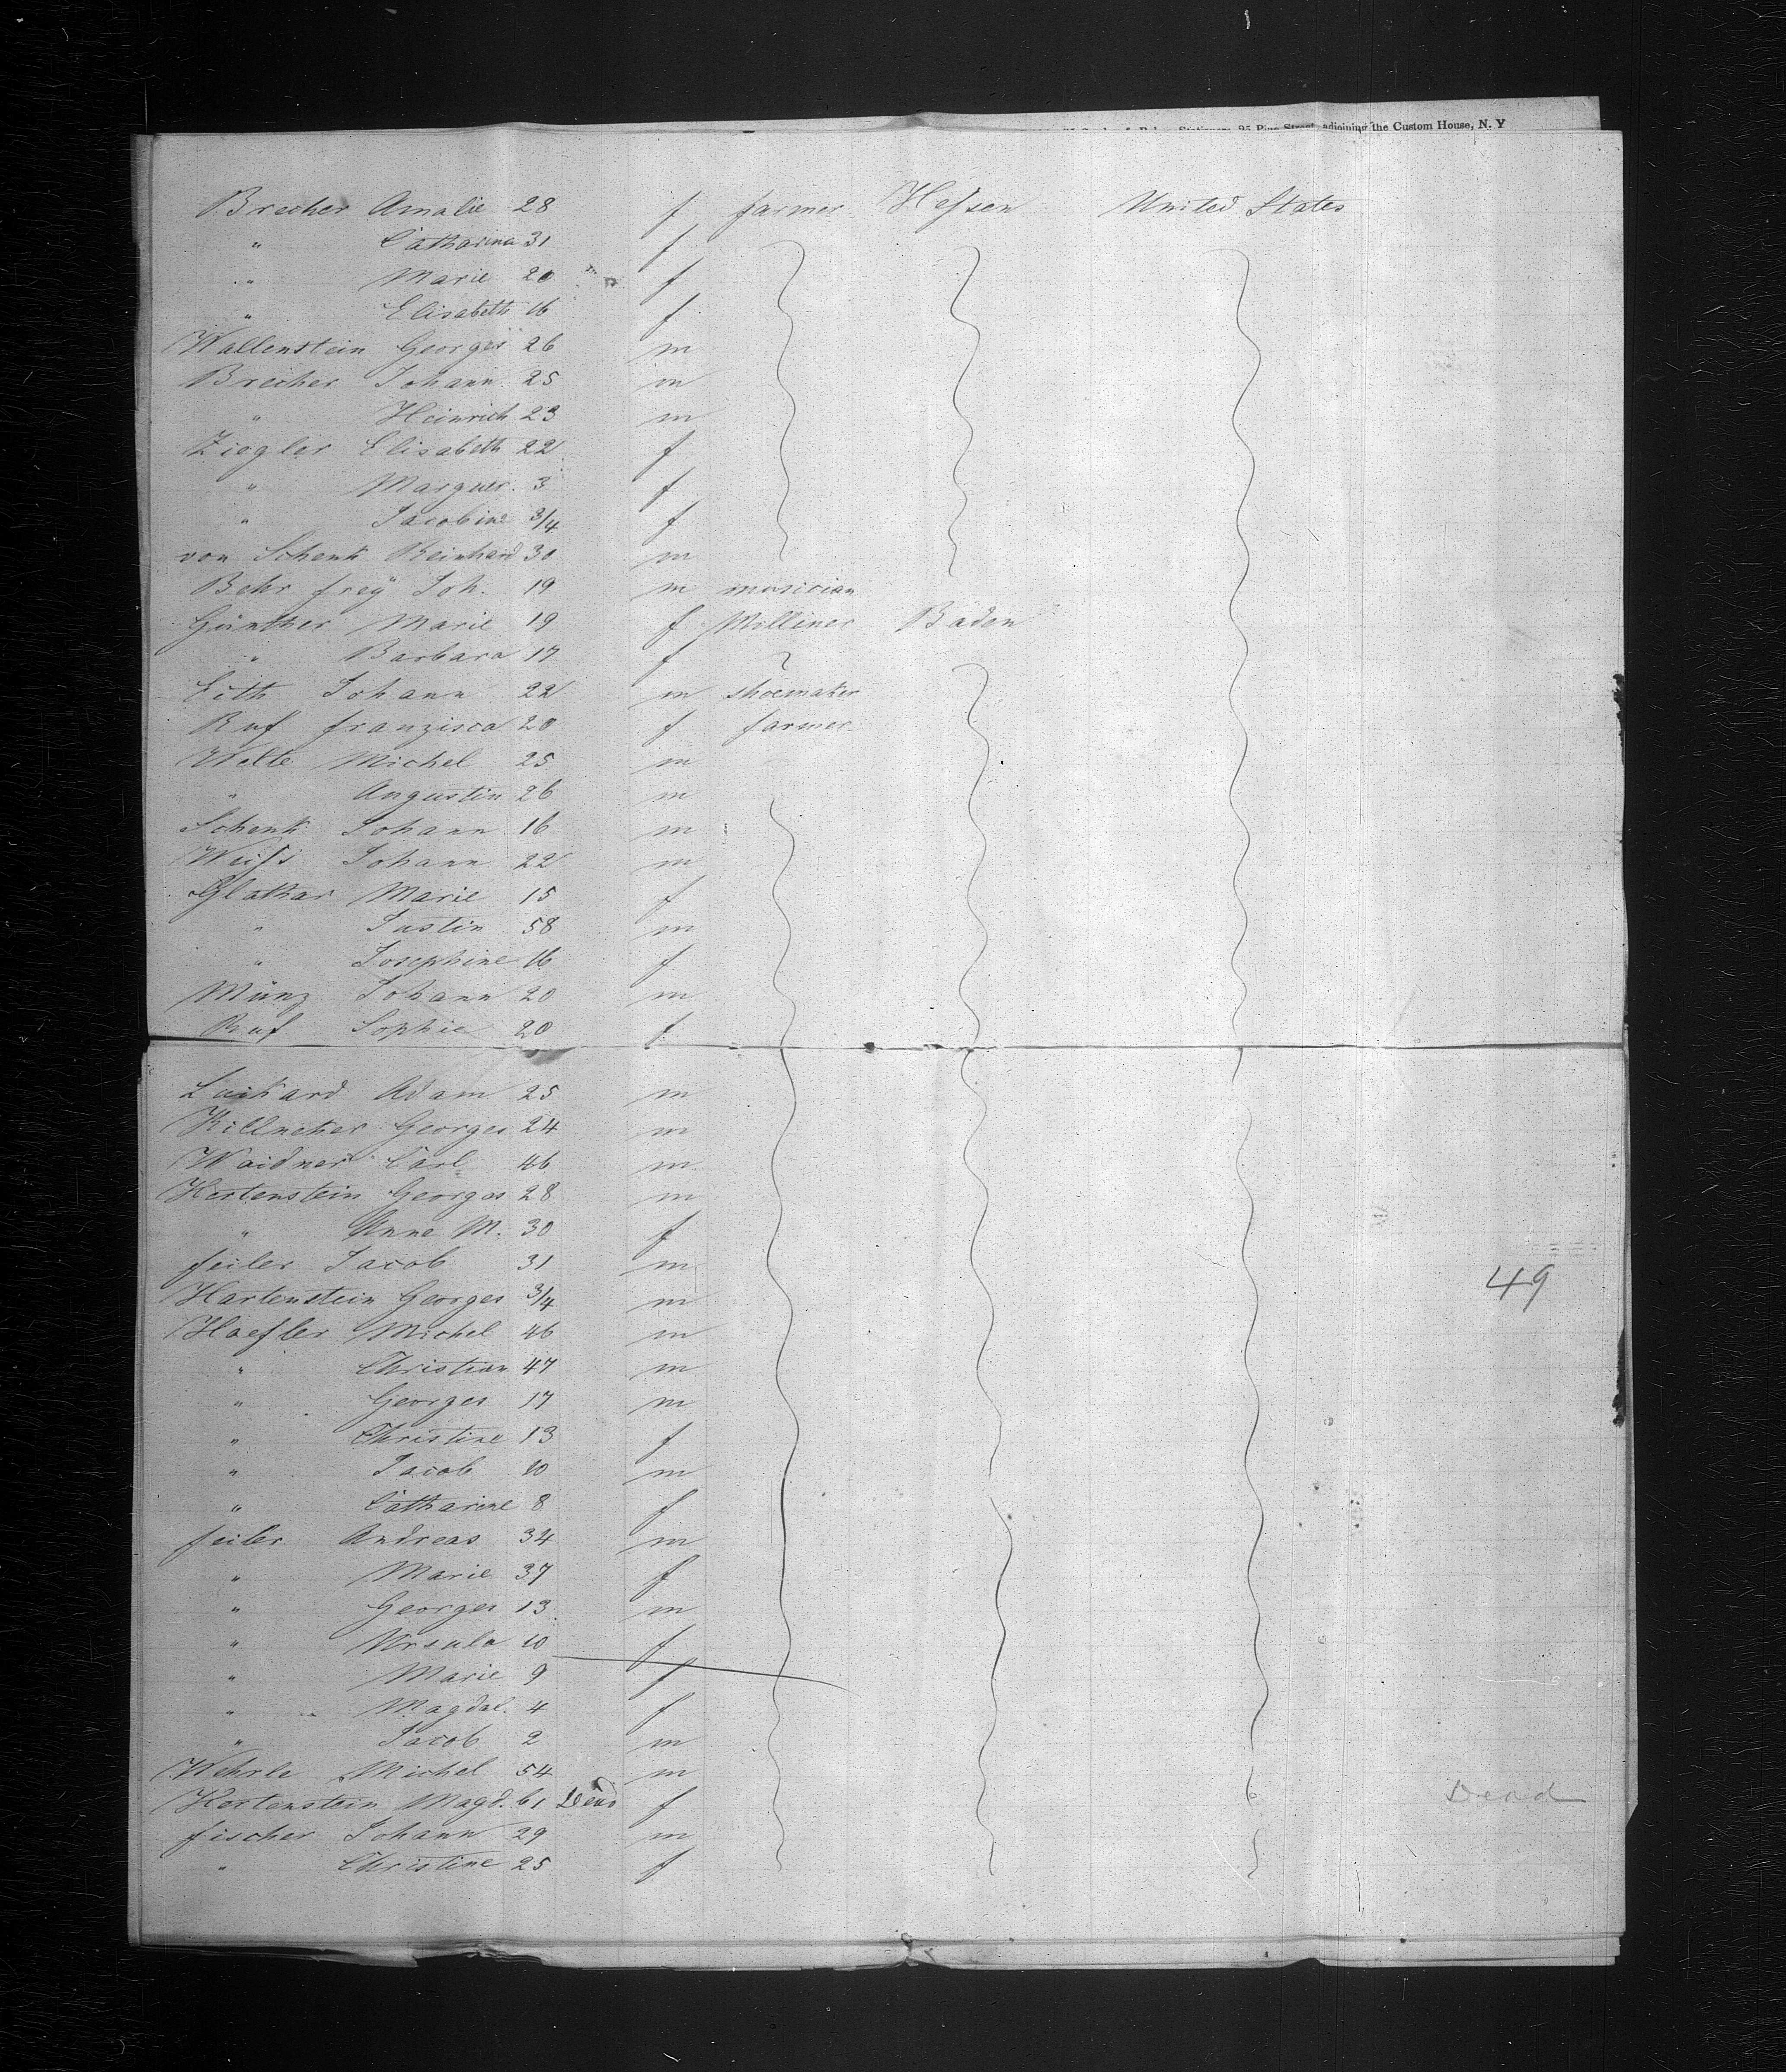 Stationers, 95 Pine Street, adjoining the Custom House, N. Y
Brecher Amalie 28 f farmer Hessen United States
" Catharina 31 f
" Marie 20 f
" Elisabeth 16 f
Wallenstein Georges 26 m
Brecher Johann 25 m
" Heinrich 23 m
Ziegler Elisabeth 22 f
" Marguer. 3 f
" Jacobine 3/4 f
von Schenk Reinhard 30 m
Behr frey Joh. 19 m musician
Günther Marie 19 f Milliner Baden
" Barbara 17 f
Eith Johann 22 m shoemaker
Ruf Franzisca 20 f farmer
Welte Michel 25 m
" Augustin 26 m
Schenk Johann 16 m
Weiss Johann 22 m
Glathar Marie 15 f
" Justin 58 m
" Josephine 16 f
Münz Johann 20 m
Ruf Sophie 20 f
Luikard Adam 25 m
Killneker Georges 24 m
Waidner Carl 46 m
Hertenstein Georges 28 m
" Anne M. 30 f
Feiler Jacob 31 m
Hartenstein Georges 3/4 m 49
Haefler Michel 46 m
" Christian 47 m
" Georges 17 m
" Christine 13 f
" Jacob 10 m
" Catharine 8 f
Feiler Andreas 34 m
" Marie 37 f
" Georges 13 m
" Ursula 10 f
" Marie 9 f
" " Magdal. 4 f
" Jacob 2 m
Wehrle Michel 54 m
Hertenstein Magd. 61 Dead f Dead
Fischer Johann 29 m
" Christine 25 f